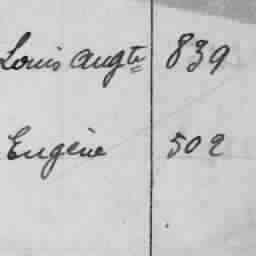 Louis Augte 839
Eugène 502